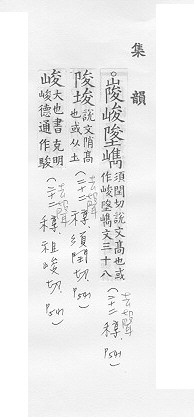 集韻
○嶐峻𡐊嶲須閏切說文高也或
作峻𡐊嶲文三十八
(二十二稕 P541)
陖埈說文陗高
也或从土
(二十二稕 須閏切 P541)
峻大也書克明
峻德通作駿
(二十二稕 祖峻切 P541)